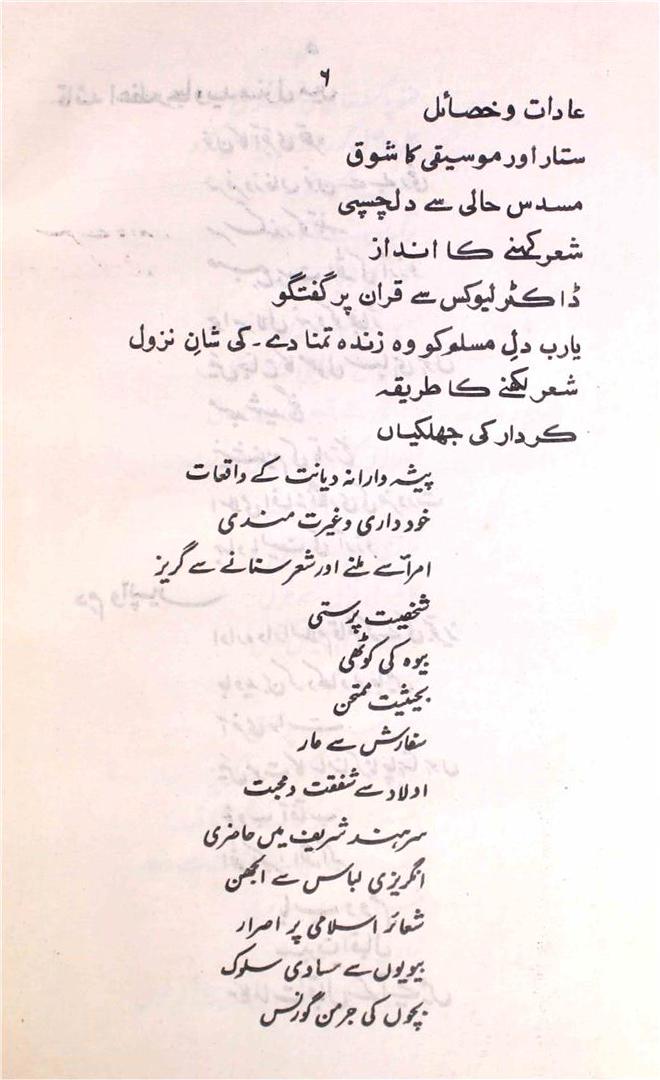 ۶
عادات و خصائل
ستار اور موسیقی کا شوق
مسدس حالی سے دلچسپی
شعر کہنے کا انداز
ڈاکٹر لیوکس سے قران پر گفتگو
یارب دلِ مسلم کو وہ زندہ تمنا دے۔ کی شانِ نزول
شعر لکھنے کا طریقہ
کردار کی جھلکیاں
پیشہ وارانہ دیانت کے واقعات
خود داری و غیرت مندی
امرأ سے ملنے اور شعر سنانے سے گریز
شخصیت پرستی
بیوہ کی کوٹھی
بحیثیت ممتحن
سفارش سے عار
اولاد سے شفقت و محبت
سرہند شریف میں حاضری
انگریزی لباس سے الجھن
شعائر اسلامی پر اصرار
بیویوں سے مساوی سلوک
بچوں کی جرمن گورنس